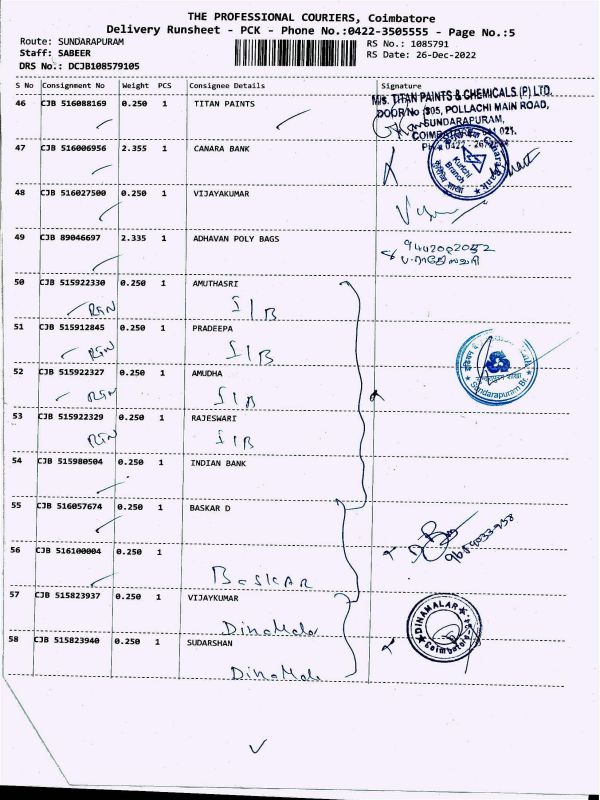 THE PROFESSIONAL COURIERS, Coimbatore
Delivery Runsheet - PCK - Phone No.:0422-3505555 - Page No.:5
Route: SUNDARAPURAM
Staff: SABEER
DRS No.: DCJB108579105
RS No.: 1085791
RS Date: 26-Dec-2022
S No Consignment No Weight PCS Consignee Details Signature
46 CJB 516088169 0.250 1 TITAN PAINTS
M/s. TITAN PAINTS & CHEMICALS (P) LTD.
DOOR No :305, POLLACHI MAIN ROAD,
SUNDARAPURAM,
47 CJB 516006956 2.355 1 CANARA BANK
Kurichi
Branch
48 CJB 516027500 0.250 1 VIJAYAKUMAR
49 CJB 89046697 2.335 1 ADHAVAN POLY BAGS
50 CJB 515922330 0.250 1 AMUTHASRI
RGN SIB
51 CJB 515912845 0.250 1 PRADEEPA
RGN SIB
52 CJB 515922327 0.250 1 AMUDHA
RGN SIB
Sundarapuram Br.
53 CJB 515922329 0.250 1 RAJESWARI
RGN SIB
54 CJB 515980504 0.250 1 INDIAN BANK
55 CJB 516057674 0.250 1 BASKAR D
56 CJB 516100004 0.250 1
BASKAR
57 CJB 515823937 0.250 1 VIJAYKUMAR
DinaMala
DINAMALAR
Coimbatore
58 CJB 515823940 0.250 1 SUDARSHAN
DinaMala